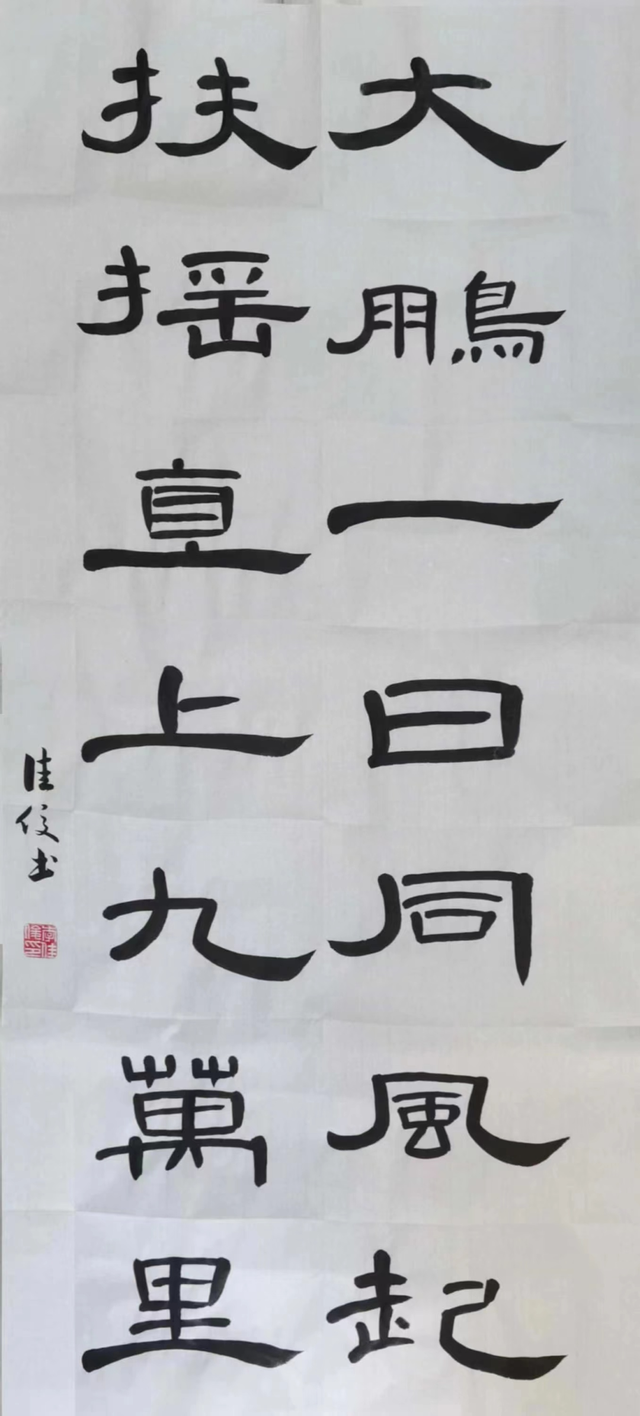 大鵬一日同風起
扶揺直上九萬里
佳俊书